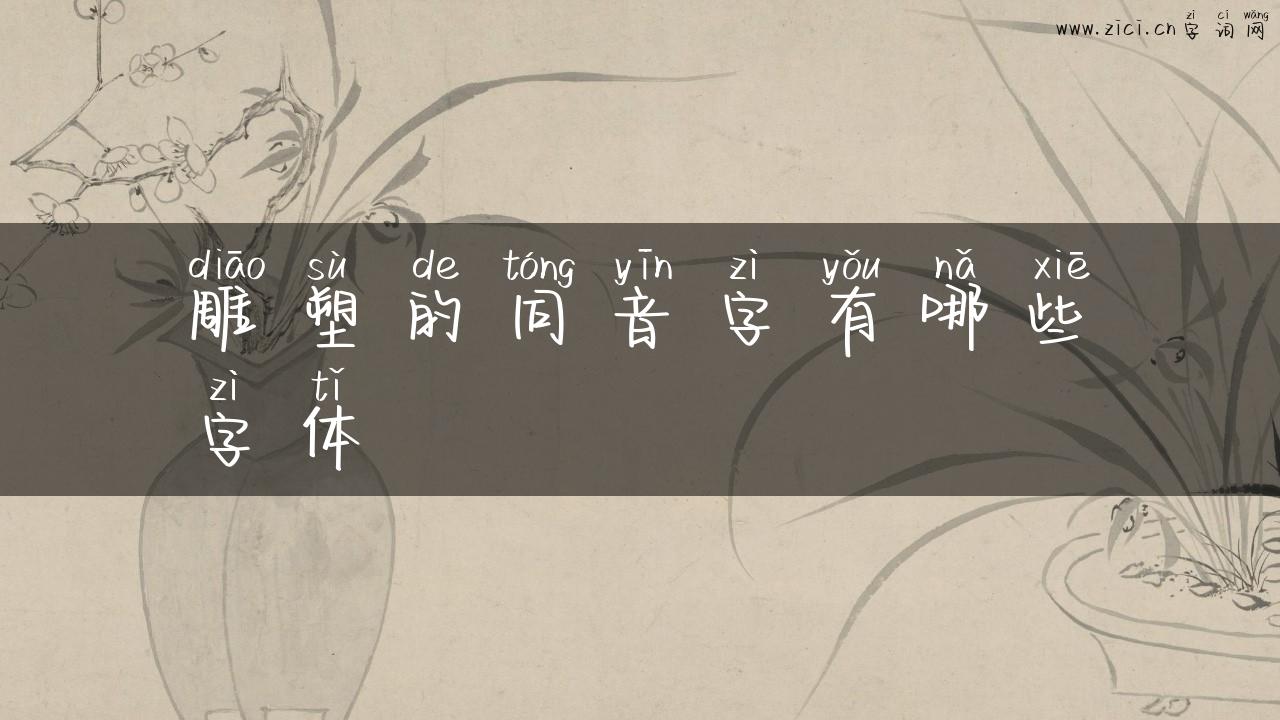 zì cí wǎng
www.zici.cn 字词网
diāo sù de tóng yīn zì yǒu nǎ xiē
雕塑的同音字有哪些
zì tǐ
字体